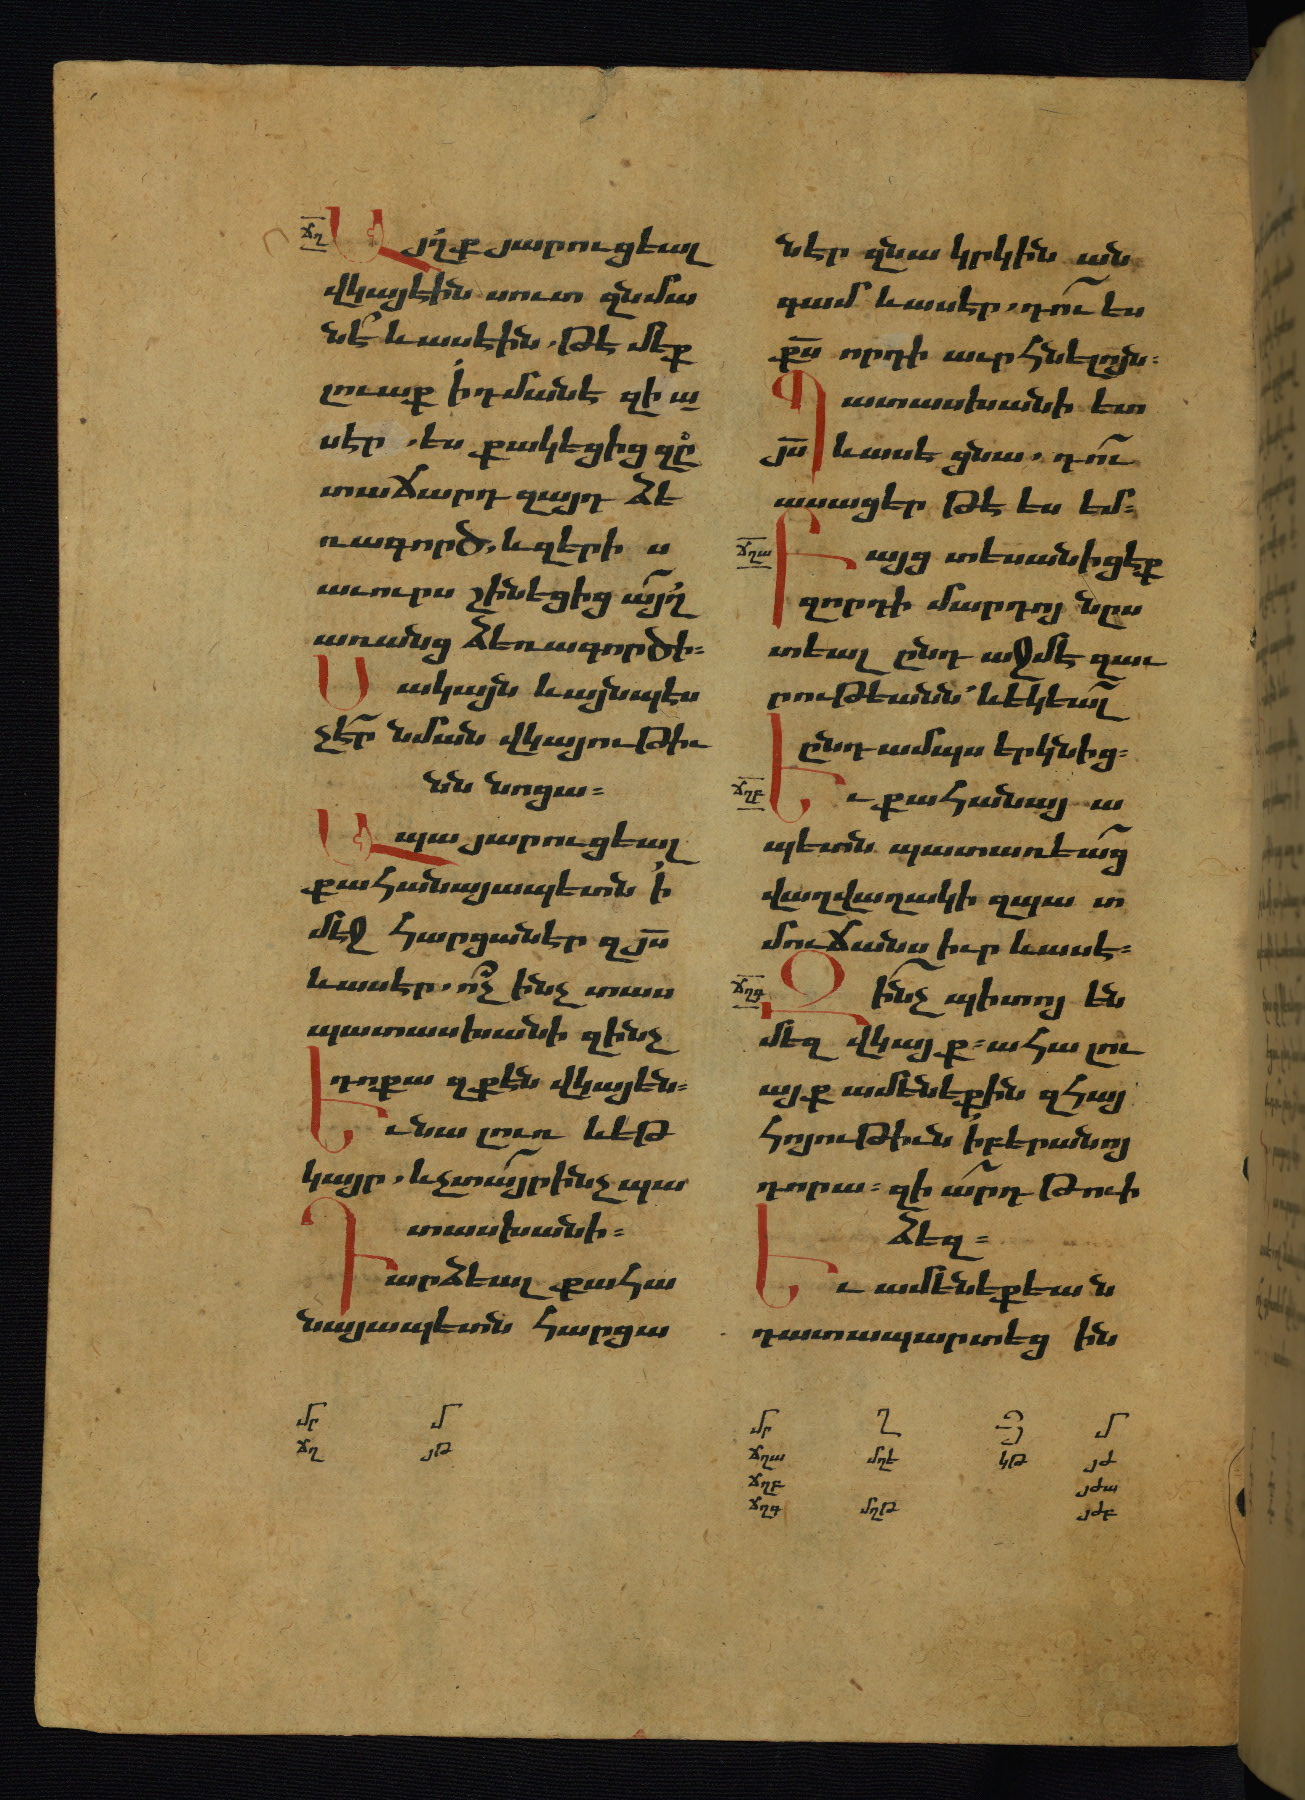 ՃՂ
Այլք յարուցեալ
վկայէին սուտ զնմա
նէ՛ և ասէին, թէ մեք
լուաք ի դմանէ զի ա
սէր, ես քակեցից զը
տաճարդ զայդ ձե
ռագործ, և զերիս
աւուրս շինեցից այլ
առանց ձեռագործի։
Սակայն և այնպէս
չէր նման վկայութիւ
նն նոցա։
Ապա յարուցեալ
քահանայապետն ի
մէջ հարցանէր զյս
և ասէր, ոչ ինչ տաս
պատասխանի զինչ
դոքա զքէն վկայեն։
Եւ նա լուռ ևեթ
կայր, և չտայր ինչ պա
տասխանի։
Դարձեալ քահա
նայապետն հարցա
ՄՐ Մ
ՃՂ ՅԹ
նէր ցնա կրկին ան
գամ և ասէր, դու ես
քս որդի աւրհնելոյն։
Պատասխանի ետ
յս և ասէ ցնա, դու
ասացեր թէ ես եմ։
ՃՂԱ
Բայց տեսանիցէք
զորդի մարդոյ նըս
տեալ ընդ աջմէ զաւ
րութեանն՝ և եկեալ
ընդ ամպս երկնից։
ՃՂԲ
Եւ քահանայա
պետն պատառեաց
վաղվաղակի զպատ
մուճանս իւր և ասէ։
ՃՂԳ
Զինչ պիտոյ են
մեզ վկայք։ ահա լու
այք ամենեքին զհայ
հոյութիւն ի բերանոյ
դորա։ զի արդ թուի
ձեզ։
Եւ ամենեքեան
դատապարտեցին
ՄՐ Ղ Յ Մ
ՃՂԱ ՄՂԷ ԿԹ ՅԺ
ՃՂԲ ՅԺԱ
ՃՂԳ ՄՂԹ ՅԺԲ